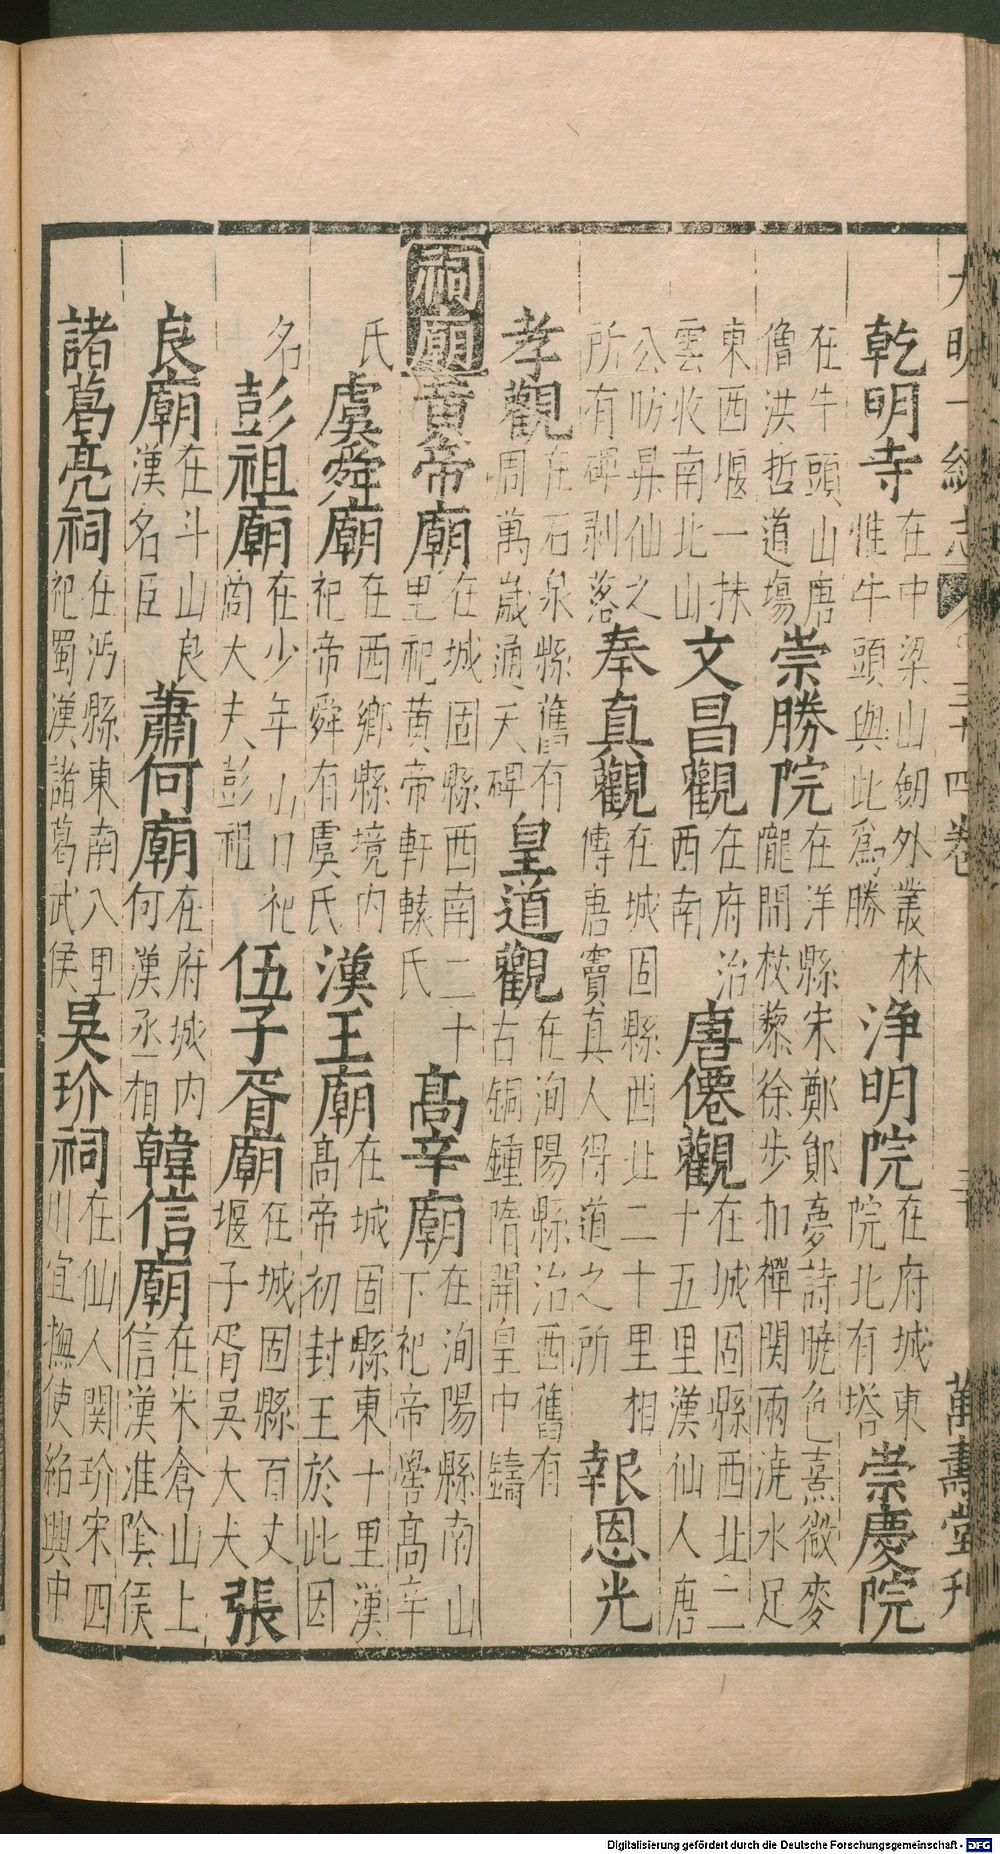 大明一統志 三十四卷 萬壽堂刊
乾明寺 在中梁山劒外叢林惟牛頭與此爲勝 淨明院 在府城東院北有塔 崇慶院
在牛頭山唐僧洪哲道場 崇勝院 在洋縣宋鄭鄖夢詩曉色熹微麥隴間杖藜徐步扣禪関兩澆水足
東西堰一抹雲收南北山 文昌觀 在府治西南 唐僊觀 在城固縣西北二十五里漢仙人唐
公昉昇仙之所有碑剥落 奉真觀 在城固縣西北二十里相傳唐竇真人得道之所 報恩光
孝觀 在石泉縣舊有周萬歲通天碑 皇道觀 在洵陽縣治西舊有古銅鍾隋開皇中鑄
祠廟 黄帝廟 在城固縣西南二十里祀黄帝軒轅氏 髙辛廟 在洵陽縣南山下祀帝嚳髙辛
氏 虞舜廟 在西鄉縣境内祀帝舜有虞氏 漢王廟 在城固縣東十里漢髙帝初封王於此因
名 彭祖廟 在少年山口祀啇大夫彭祖 伍子胥廟 在城固縣百丈堰子胥吳大夫 張
良廟 在斗山良漢名臣 蕭何廟 在府城内何漢丞相 韓信廟 在米倉山上信漢淮隂侯
諸葛亮祠 在沔縣東南八里祀蜀漢諸葛武侯 吳玠祠 在仙人関玠宋四川宣撫使紹興中
Digitalisierung gefördert durch die Deutsche Forschungsgemeinschaft - DFG